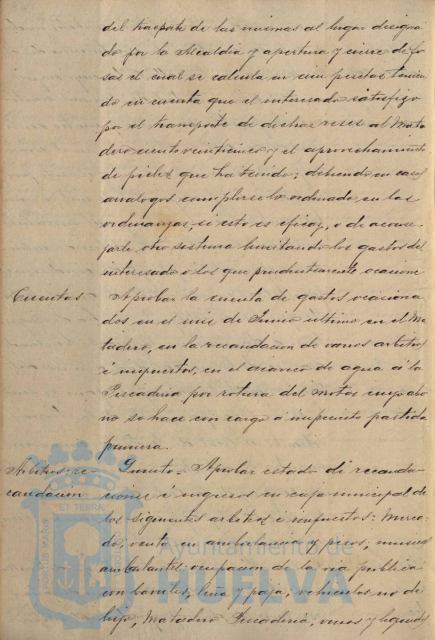 del trasporte de las mismas al lugar designa
do por la Alcaldía y apertura y cierre de fo
sas el cual se calcula en cien pesetas tenien
do en cuenta que el interesado satisfizo
por el transporte de dichas reses al Mata
dero ciento veinticinco y el aprovechamiento
de pieles que ha tenido; debiendo en casos
analogos cumplirse lo ordenado en las
ordenanzas, si esto es eficaz, o de aconse
jarle otro sistema limitando los gastos del
interesado a los que prudentemente ocasione
Cuentas
Aprobar la cuenta de gastos ocasiona
dos en el mes de Junio ultimo en el Ma
tadero, en la recaudacion de varios arbitrios
é impuestos, en el acarreo de agua á la
Pescadería por rotura del motor cuyo abo
no se hace con cargo á imprevisto partida
primera.
Arbitrios re
caudacion
Quinto = Aprobar estado de recauda
cion é ingresos en caja municipal de
los siguientes arbitrios é impuestos: Merca
do, venta en ambulancia y pesos; musicos
ambulantes, ocupacion de la via publica
con barriles, leña y paja, vehiculos no de
lujo, Matadero Pescadería, vinos y
PORTUS MARIS
ET TERRÆ
Ayuntamiento de
HUELVA